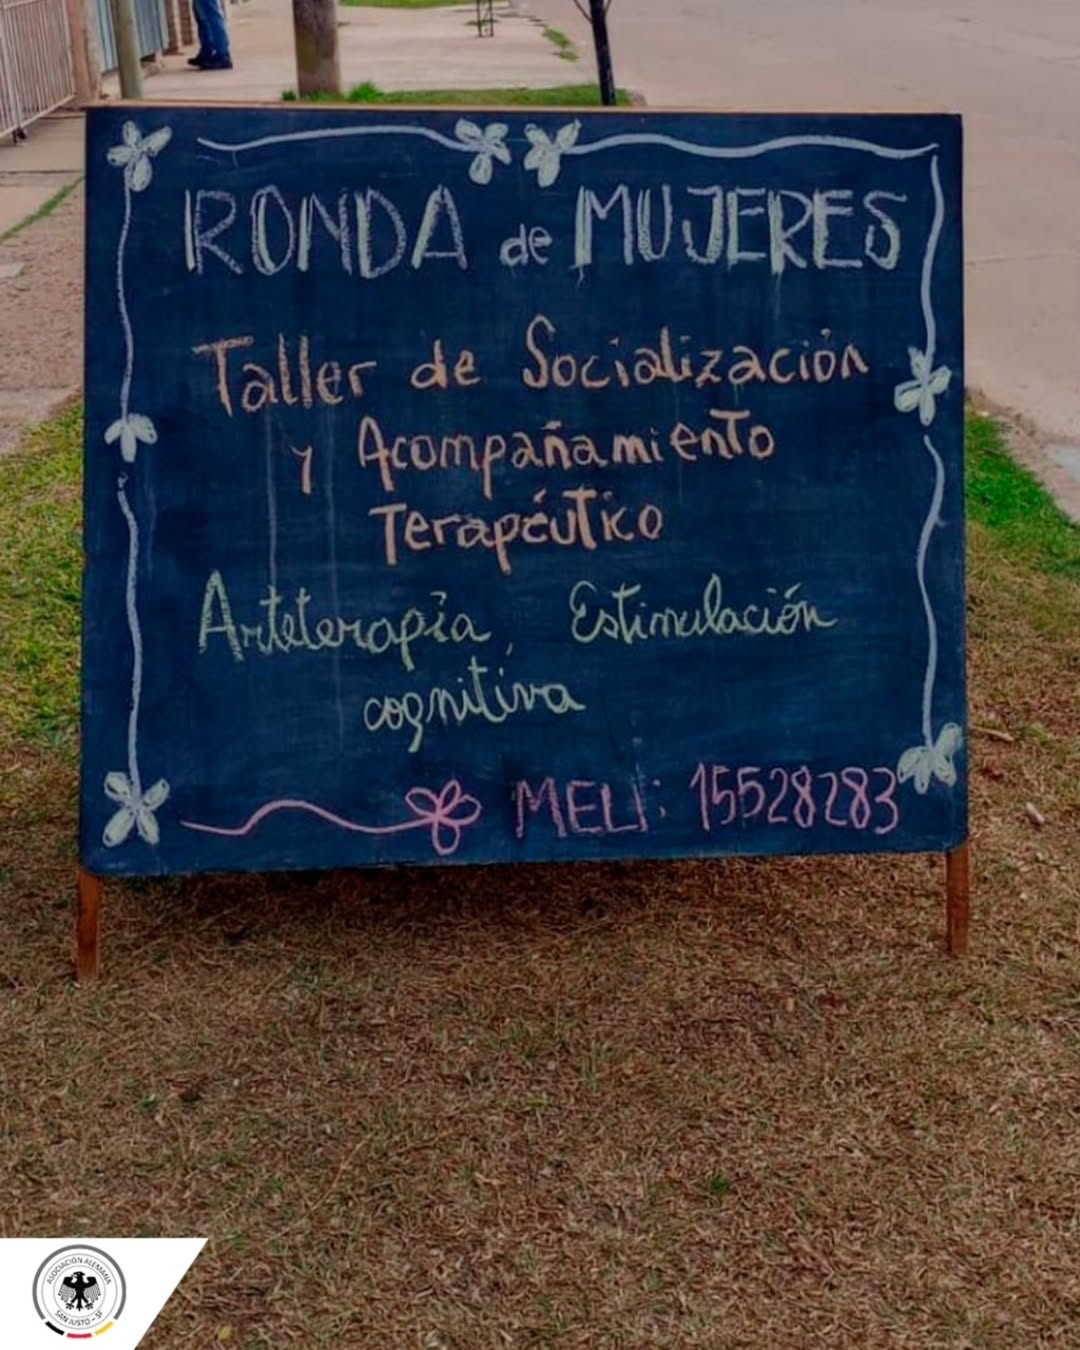 RONDA de MUJERES
Taller de Socialización
y Acompañamiento
Terapéutico
Arteterapia, Estimulación
cognitiva
MELI: 15528283
ASOCIACIÓN ALEMANA
SAN JUSTO - SF